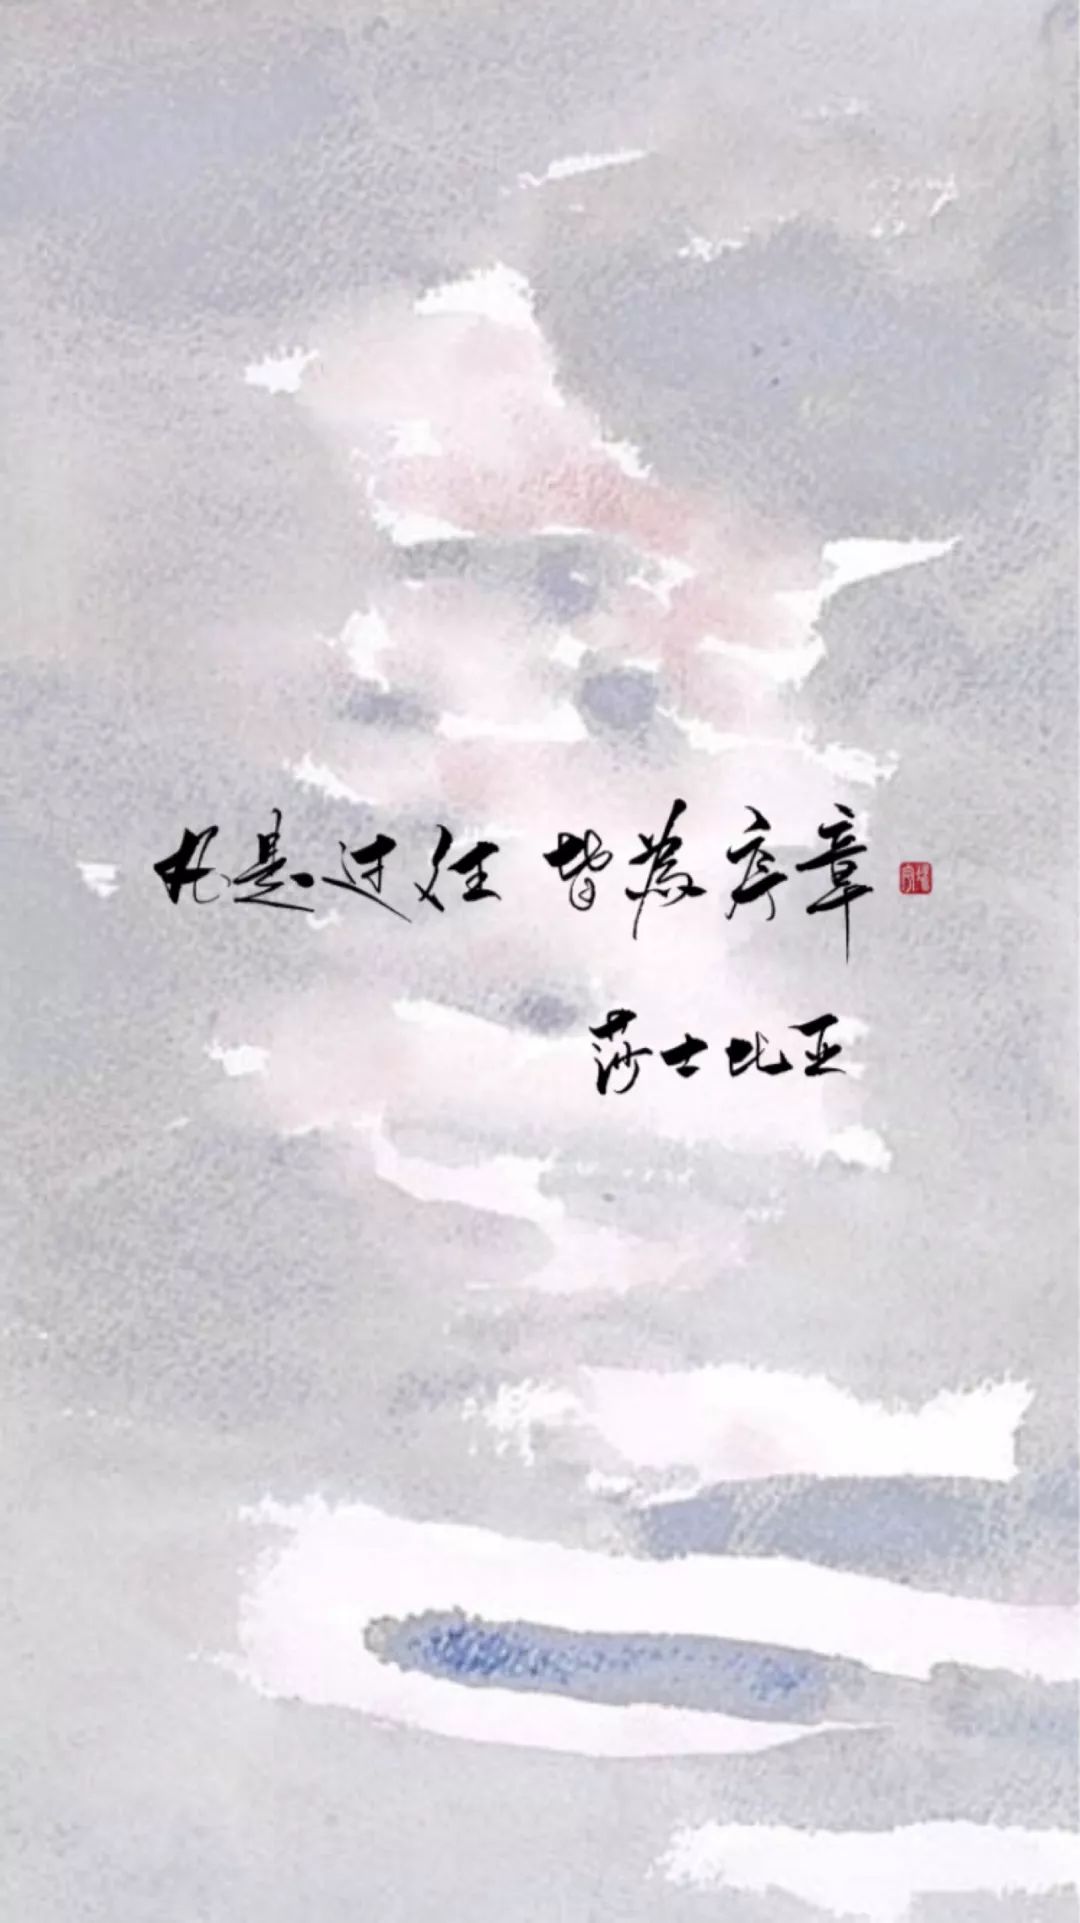 凡是过往 皆為序章
莎士比亚